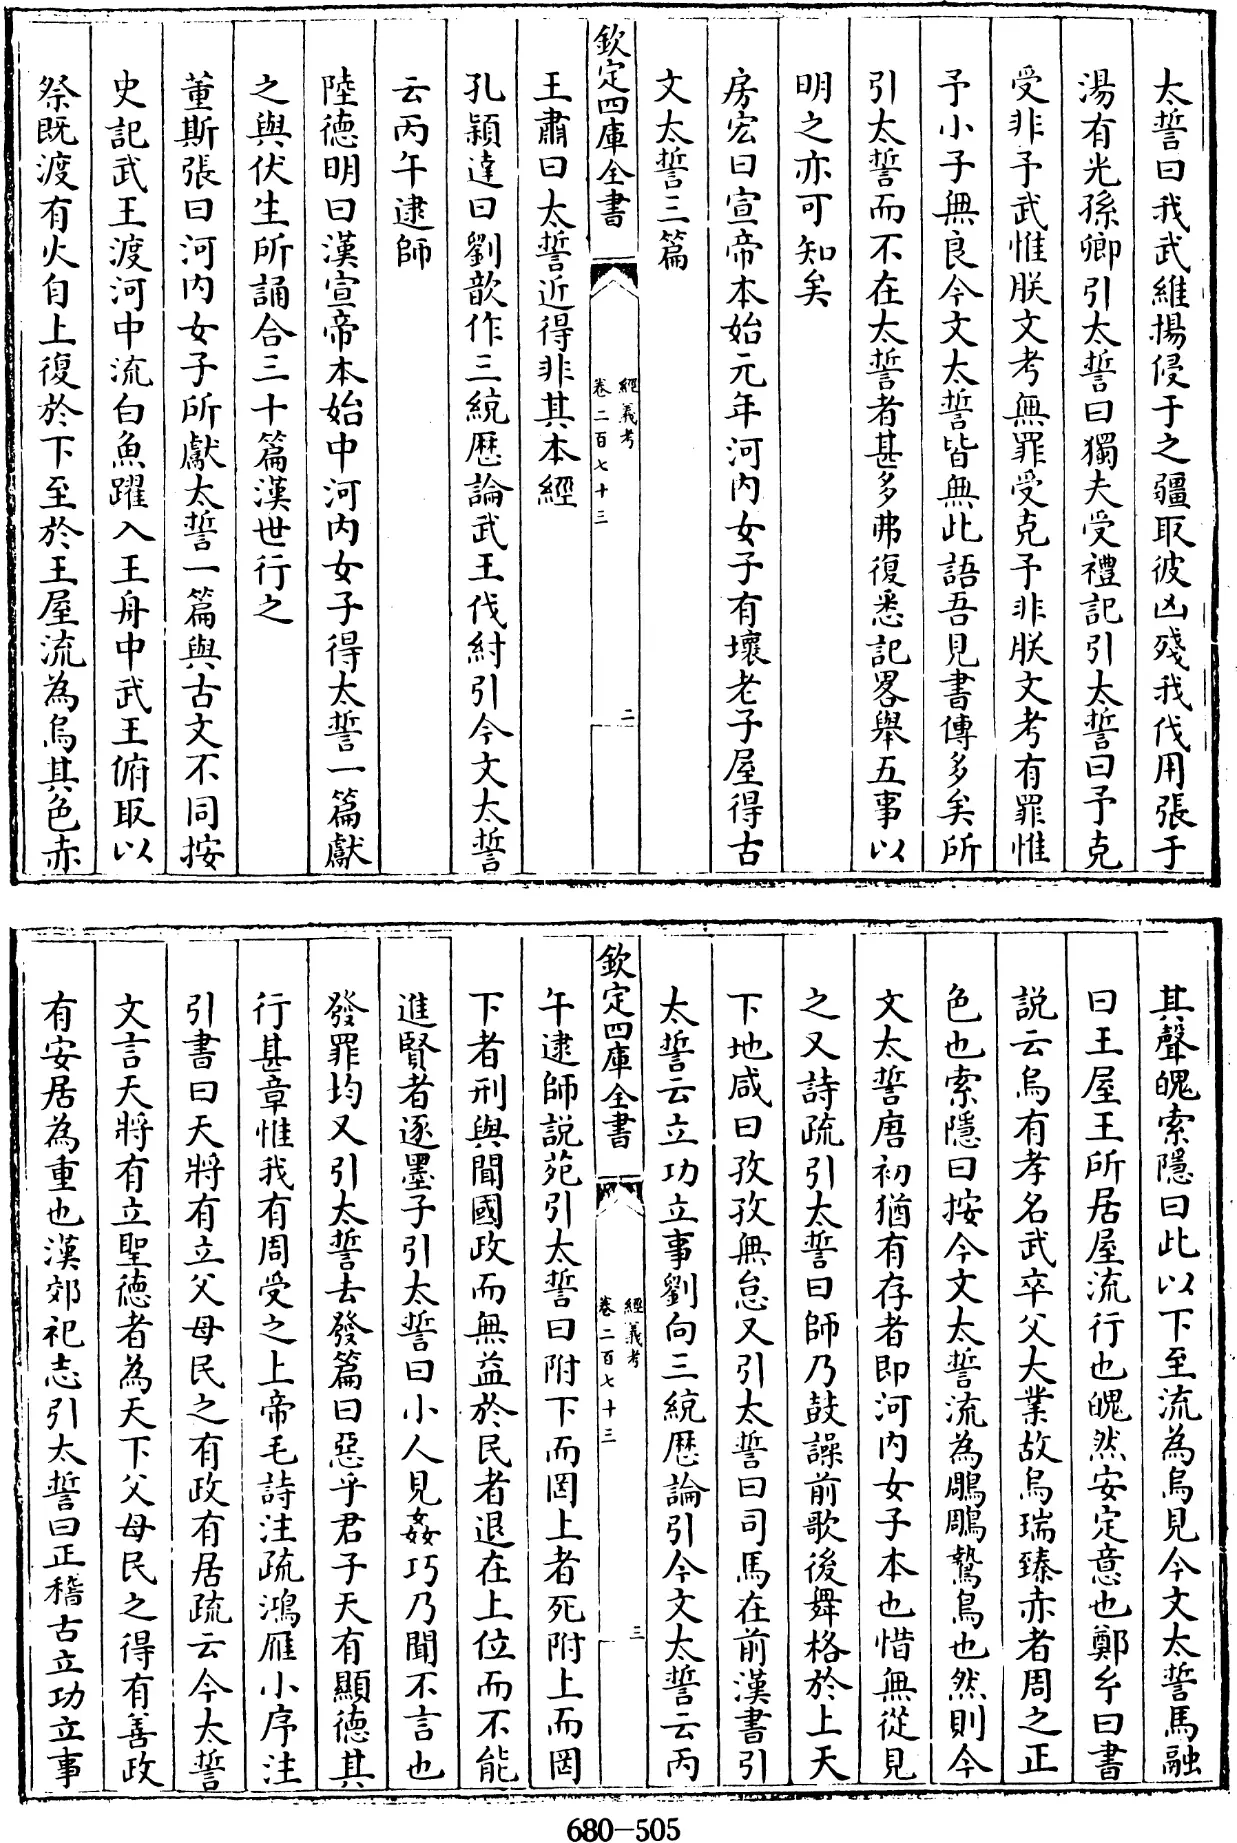 太誓曰我武維揚侵于之疆取彼凶殘我伐用張于
湯有光孫卿引太誓曰獨夫受禮記引太誓曰予克
受非予武惟朕文考無罪受克予非朕文考有罪惟
予小子無良今文太誓皆無此語吾見書傳多矣所
引太誓而不在太誓者甚多弗復悉記畧舉五事以
明之亦可知矣
房宏曰宣帝本始元年河内女子有壞老子屋得古
文太誓三篇
欽定四庫全書
經義考
卷二百七十三
二
王肅曰太誓近得非其本經
孔穎達曰劉歆作三統厯論武王伐紂引今文太誓
云丙午逮師
陸德明曰漢宣帝本始中河内女子得太誓一篇獻
之與伏生所誦合三十篇漢世行之
董斯張曰河内女子所獻太誓一篇與古文不同按
史記武王渡河中流白魚躍入王舟中武王俯取以
祭既渡有火自上復於下至於王屋流為烏其色赤
其聲魄索隱曰此以下至流為烏見今文太誓馬融
曰王屋王所居屋流行也魄然安定意也鄭𤣥曰書
説云烏有孝名武卒父大業故烏瑞臻赤者周之正
色也索隱曰按今文太誓流為鵰鵰鷙鳥也然則今
文太誓唐初猶有存者即河内女子本也惜無從見
之又詩疏引太誓曰師乃鼓譟前歌後舞格於上天
下地咸曰孜孜無怠又引太誓曰司馬在前漢書引
太誓云立功立事劉向三統厯論引今文太誓云丙
欽定四庫全書
經義考
卷二百七十三
三
午逮師説苑引太誓曰附下而罔上者死附上而罔
下者刑與聞國政而無益於民者退在上位而不能
進賢者逐墨子引太誓曰小人見姦巧乃聞不言也
發罪均又引太誓去發篇曰惡乎君子天有顯德其
行甚章惟我有周受之上帝毛詩注疏鴻雁小序注
引書曰天將有立父母民之有政有居疏云今太誓
文言天將有立聖德者為天下父母民之得有善政
有安居為重也漢郊祀志引太誓曰正稽古立功立事
680-505